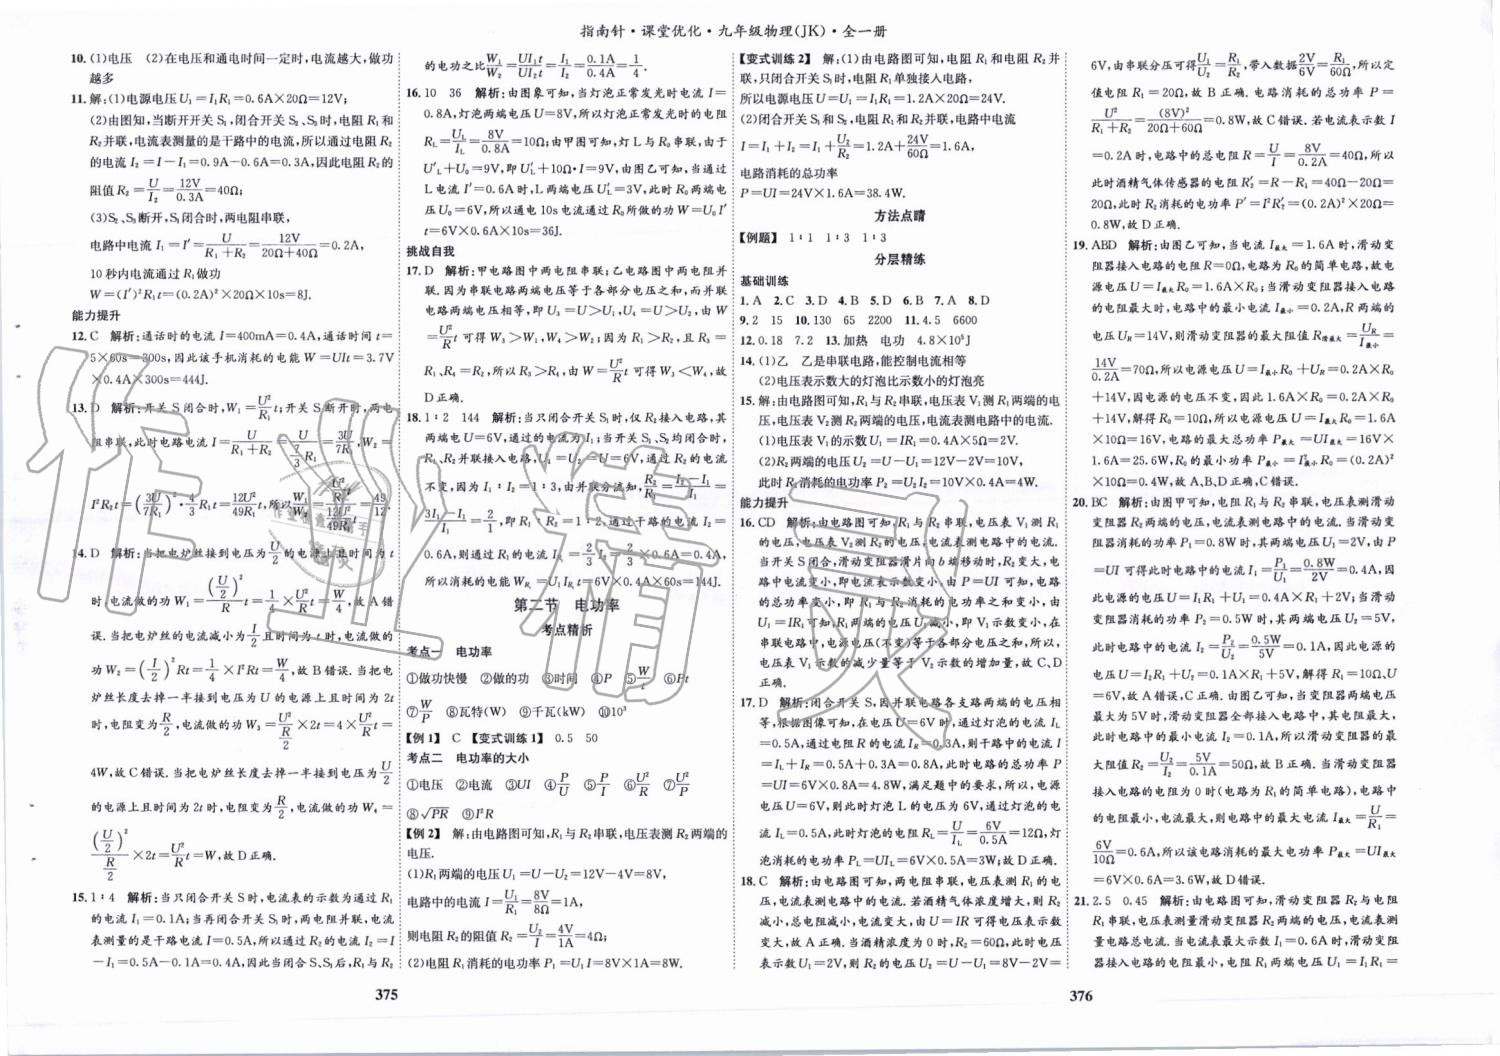 指南针·课堂优化·九年级物理(JK)·全一册
10. (1)电压 (2)在电压和通电时间一定时,电流越大,做功
越多
11. 解:(1)电源电压U₁=I₁R₁=0.6A×20Ω=12V;
(2)由图知,当断开开关S₁,闭合开关S₂、S₃时,电阻R₁和
R₂并联,电流表测量的是干路中的电流,所以通过电阻R₂
的电流I₂=I-I₁=0.9A-0.6A=0.3A,因此电阻R₂的
阻值R₂=U/I₂=12V/0.3A=40Ω;
(3)S₂、S₃断开,S₁闭合时,两电阻串联,
电路中电流I₁=I′=U/(R₁+R₂)=12V/(20Ω+40Ω)=0.2A,
10秒内电流通过R₁做功
W=(I′)²R₁t=(0.2A)²×20Ω×10s=8J.
能力提升
12. C 解析:通话时的电流I=400mA=0.4A,通话时间t=
5×60s=300s,因此该手机消耗的电能W=UIt=3.7V
×0.4A×300s=444J.
13. D 解析:开关S闭合时,W₁=U²/R₁t;开关S断开时,两电
阻串联,此时电路电流I=U/(R₁+R₂)=U/(7/3R₁)=3U/7R₁,W₂=
I²R₂t=(3U/7R₁)²·4/3R₁t=12U²/49R₁t,所以W₁/W₂=(U²/R₁t)/(12U²/49R₁t)=49/12.
14. D 解析:当把电炉丝接到电压为U/2的电源上且时间为t
时,电流做的功W₁=(U/2)²/Rt=1/4×U²/Rt=W/4,故A错
误.当把电炉丝的电流减小为I/2且时间为t时,电流做的
功W₂=(I/2)²Rt=1/4×I²Rt=W/4,故B错误.当把电
炉丝长度去掉一半接到电压为U的电源上且时间为2t
时,电阻变为R/2,电流做的功W₃=U²/(R/2)×2t=4×U²/Rt=
4W,故C错误.当把电炉丝长度去掉一半接到电压为U/2
的电源上且时间为2t时,电阻变为R/2,电流做的功W₄=
(U/2)²/(R/2)×2t=U²/Rt=W,故D正确.
15. 1∶4 解析:当只闭合开关S时,电流表的示数为通过R₁
的电流I₁=0.1A;当再闭合开关S₁时,两电阻并联,电流
表测量的是干路电流I=0.5A,所以通过R₂的电流I₂=I
-I₁=0.5A-0.1A=0.4A,因此当闭合S、S₁后,R₁与R₂
的电功之比W₁/W₂=UI₁t/UI₂t=I₁/I₂=0.1A/0.4A=1/4.
16. 10 36 解析:由图象可知,当灯泡正常发光时电流I=
0.8A,灯泡两端电压U=8V,所以灯泡正常发光时的电阻
R_L=U_L/I_L=8V/0.8A=10Ω;由甲图可知,灯L与R₀串联,由于
U′_L+U₀=9V,即U′_L+10Ω·I=9V,由图乙可知,当通过
L电流I′=0.6A时,L两端电压U′_L=3V,此时R₀两端电
压U₀=6V,所以通电10s电流通过R₀所做的功W=U₀I′
t=6V×0.6A×10s=36J.
挑战自我
17. D 解析:甲电路图中两电阻串联;乙电路图中两电阻并
联.因为串联电路两端电压等于各部分电压之和,而并联
电路两端电压相等,即U₃=U>U₁,U₄=U>U₂,由W
=U²/Rt可得W₃>W₁,W₄>W₂;因为R₁>R₂,且R₃=
R₁、R₄=R₂,所以R₃>R₄,由W=U²/Rt可得W₃<W₄,故
D正确.
18. 1∶2 144 解析:当只闭合开关S₁时,仅R₂接入电路,其
两端电压U=6V,通过的电流为I₁;当S、S₁均闭合时,
R₁、R₂并联接入电路,U₁=U₂=U=6V,通过的电流为I₂,
因为I₁∶I₂=2∶3,由并联分流知,R₂/R₁=(I₂-I₁)/I₁=
(3I₁-I₁)/I₁=2/1,即R₁∶R₂=1∶2,通过干路的电流I₂=
0.6A,所以R₁的电流I₁=2/3I₂=2/3×0.6A=0.4A,
所以消耗的电能W_R₁=U₁I_R₁t=6V×0.4A×60s=144J.
第二节 电功率
考点精析
考点一 电功率
①做功快慢 ②做的功 ③时间 ④P ⑤W/t ⑥Pt
⑦W/P ⑧瓦特(W) ⑨千瓦(kW) ⑩10³
【例1】 C 【变式训练1】 0.5 50
考点二 电功率的大小
①电压 ②电流 ③UI ④P/U ⑤P/I ⑥U²/R ⑦U²/P
⑧√PR ⑨I²R
【例2】 解:由电路图可知,R₁与R₂串联,电压表测R₂两端的
电压.
(1)R₁两端的电压U₁=U-U₂=12V-4V=8V,
电路中的电流I=U₁/R₁=8V/8Ω=1A,
则电阻R₂的阻值R₂=U₂/I=4V/1A=4Ω;
(2)电阻R₁消耗的电功率P₁=U₁I=8V×1A=8W.
375
【变式训练2】 解:(1)由电路图可知,电阻R₁和电阻R₂并
联,只闭合开关S₁时,电阻R₁单独接入电路,
所以电源电压U=U₁=I₁R₁=1.2A×20Ω=24V.
(2)闭合开关S₁和S₂,电阻R₁和R₂并联,电路中电流
I=I₁+I₂=I₁+U₂/R₂=1.2A+24V/60Ω=1.6A,
电路消耗的总功率
P=UI=24V×1.6A=38.4W.
方法点睛
【例题】 1∶1 1∶3 1∶3
分层精练
基础训练
1. A 2. C 3. D 4. B 5. D 6. B 7. A 8. D
9. 2 15 10. 130 65 2200 11. 4.5 6600
12. 0.18 7.2 13. 加热 电功 4.8×10⁵J
14. (1)乙 乙是串联电路,能控制电流相等
(2)电压表示数大的灯泡比示数小的灯泡亮
15. 解:由电路图可知,R₁与R₂串联,电压表V₁测R₁两端的电
压,电压表V₂测R₂两端的电压,电流表测电路中的电流.
(1)电压表V₁的示数U₁=IR₁=0.4A×5Ω=2V.
(2)R₂两端的电压U₂=U-U₁=12V-2V=10V,
此时R₂消耗的电功率P₂=U₂I₂=10V×0.4A=4W.
能力提升
16. CD 解析:由电路图可知,R₁与R₂串联,电压表V₁测R₁
的电压,电压表V₂测R₂的电压,电流表测电路中的电流.
当开关S闭合,滑动变阻器滑片向b端移动时,R₂变大,电
路中电流变小,即电流表示数变小,由P=UI可知,电路
的总功率变小,即R₁与R₂消耗的电功率之和变小,由
U₁=IR₁可知,R₁两端的电压变小,即V₁示数变小,在
串联电路中,电源电压(不变)等于各部分电压之和,所以,
电压表V₁示数的减少量等于V₂示数的增加量,故C、D
正确.
17. D 解析:闭合开关S,因并联电路各支路两端的电压相
等,根据图像可知,在电压U=6V时,通过灯泡的电流I_L
=0.5A,通过电阻R的电流I_R=0.3A,则干路中的电流I
=I_L+I_R=0.5A+0.3A=0.8A,此时电路的总功率P
=UI=6V×0.8A=4.8W,满足题中的要求,所以,电源
电压U=6V,则此时灯泡L的电压U_L=6V,通过灯的电
流I_L=0.5A,此时灯泡的电阻R_L=U/I_L=6V/0.5A=12Ω,灯
泡消耗的电功率P_L=UI_L=6V×0.5A=3W;故D正确.
18. C 解析:由电路图可知,两电阻串联,电流表测电路中的电
压,电流表测电路中的电流.若酒精气体浓度增大,则R₂
减小,总电阻减小,电流变大,由U=IR可得电压表示数
变大,故A错误.当酒精浓度为0时,R₂=60Ω,此时电压
表示数为2V,则R₂的电压U₂=U-U₁=8V-2V=
6V,由串联分压可得U₁/U₂=R₁/R₂,带入数据2V/6V=R₁/60Ω,所以定
值电阻R₁=20Ω,故B正确.电路消耗的总功率P=
U²/(R₁+R₂)=(8V)²/(20Ω+60Ω)=0.8W,故C错误.若电流表示数I
=0.2A时,则电路中的总电阻R=U/I=8V/0.2A=40Ω,所以
此时酒精气体传感器的电阻R₂′=R-R₁=40Ω-20Ω=
20Ω,此时R₂消耗的电功率P′=I²R₂′=(0.2A)²×20Ω=
0.8W,故D正确.
19. ABD 解析:由图乙可知,当电流I最大=1.6A时,滑动变
阻器接入电路的电阻R=0Ω,电路为R₀的简单电路,故电
源电压U=I最大R₀=1.6A×R₀;当滑动变阻器接入电路
的电阻最大时,电路中的最小电流I最小=0.2A,R两端的
电压U_R=14V,则滑动变阻器的最大阻值R滑最大=U_R/I最小=
14V/0.2A=70Ω,所以电源电压U=I最小R₀+U_R=0.2A×R₀
+14V,因电源的电压不变,因此1.6A×R₀=0.2A×R₀
+14V,解得R₀=10Ω,所以电源电压U=I最大R₀=1.6A
×10Ω=16V,电路的最大总功率P最大=UI最大=16V×
1.6A=25.6W,R₀的最小功率P最小=I²最小R₀=(0.2A)²
×10Ω=0.4W,故A,B,D正确,C错误.
20. BC 解析:由图甲可知,电阻R₁与R₂串联,电压表测滑动
变阻器R₂两端的电压,电流表测电路中的电流.当滑动变阻
器消耗的功率P₁=0.8W时,其两端电压U₁=2V,由P
=UI可得此时电路中的电流I₁=P₁/U₁=0.8W/2V=0.4A,
此时电源的电压U=I₁R₁+U₁=0.4A×R₁+2V;当滑动
变阻器消耗的功率P₂=0.5W时,其两端电压U₂=5V,
此时电路中的电流I₂=P₂/U₂=0.5W/5V=0.1A,所以此时电
源的电压U=I₂R₁+U₂=0.1A×R₁+5V,解得R₁=10Ω,U
=6V,故A错误,B、C正确.由图乙可知,当变阻器两端电压
最大时,滑动变阻器全部接入电路中,其电阻最大,
此时电路中的电流最小,所以滑动变阻器的最
大阻值R₂=U₂/I₂=5V/0.1A=50Ω,故B正确.当滑动变阻器
接入电路的电阻为0时(电路为R₁的简单电路),电路中
的总电阻最小,电流最大,则电路中的最大电流I最大=U/R₁=
6V/10Ω=0.6A,所以该电路消耗的最大电功率P最大=UI最大
=6V×0.6A=3.6W,故D错误.
21. 2.5 0.45 解析:由电路图可知,滑动变阻器R₂与电阻
R₁串联,电压表测量滑动变阻器R₂两端的电压,电流表测
量电路总电流.当电流表示数最大为0.3A时,滑动变阻
器接入电路的电阻最小,电阻R₁两端电压U₁=I₁R₁=
376